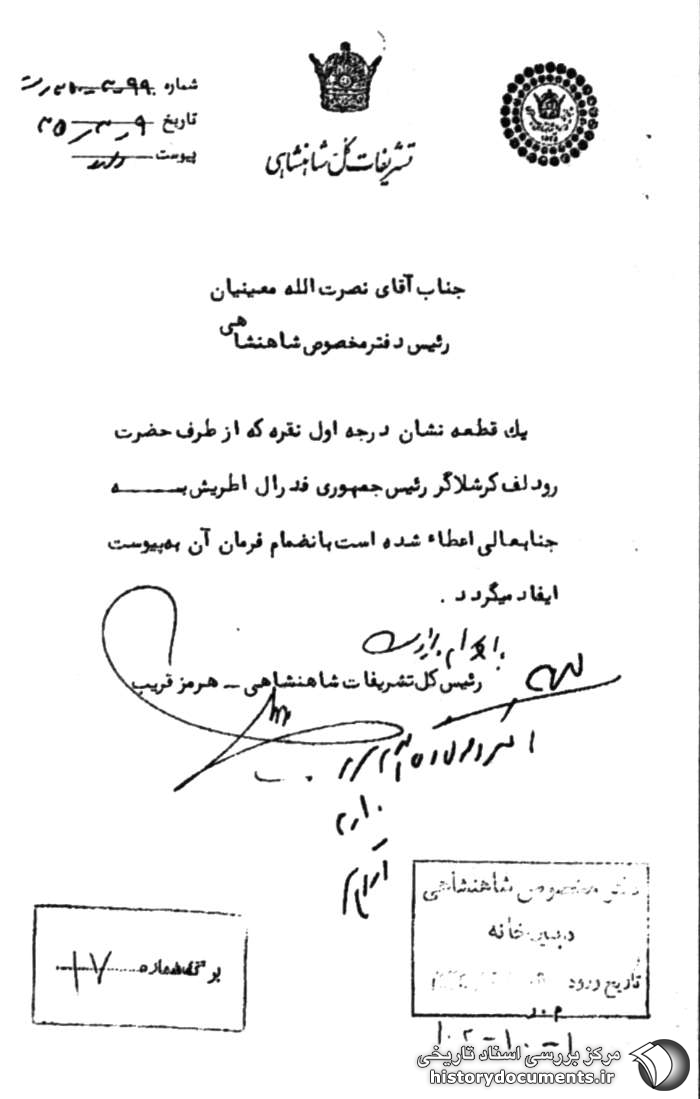 شماره
تاریخ ۹ ر ۳ ر ۳۵
پیوست دارد
تشریفات کل شاهنشاهی
جناب آقای نصرت الله معینیان
رئیس دفتر مخصوص شاهنشاهی
یك قطعه نشان درجه اول نقره که از طرف حضرت
رودلف کرشلاگر رئیس جمهوری فدرال اطریش بـــه
جنابعالی اعطاء شده است بانضمام فرمان آن به پیوست
ایفاد میگردد .
رئیس کل تشریفات شاهنشاهی ـ هرمز قریب
دفتر مخصوص شاهنشاهی
دبیرخانه
تاریخ ورود
برگ شماره ۱۷
۱۰۲-۱۰-۱
مرکز بررسی اسناد تاریخی
historydocuments.ir